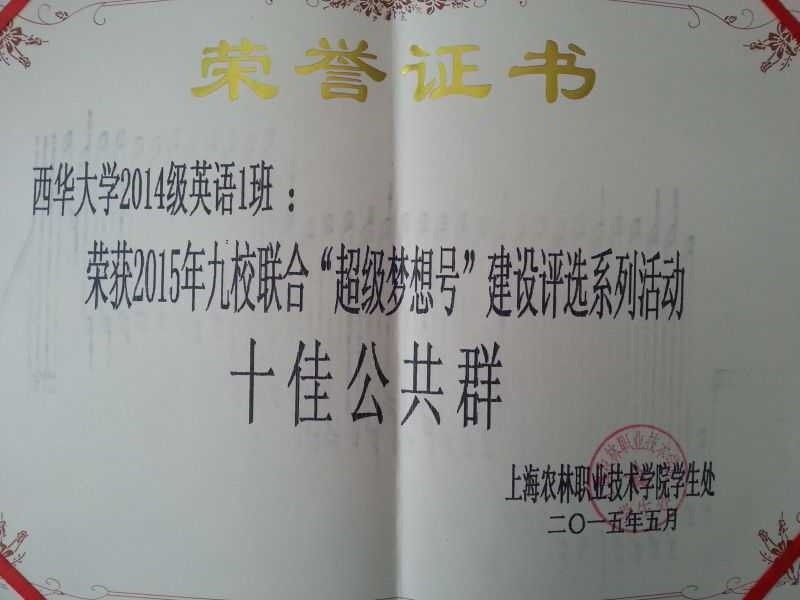 荣誉证书
西华大学2014级英语1班：
荣获2015年九校联合“超级梦想号”建设评选系列活动
十佳公共群
上海农林职业技术学院学生处
二〇一五年五月